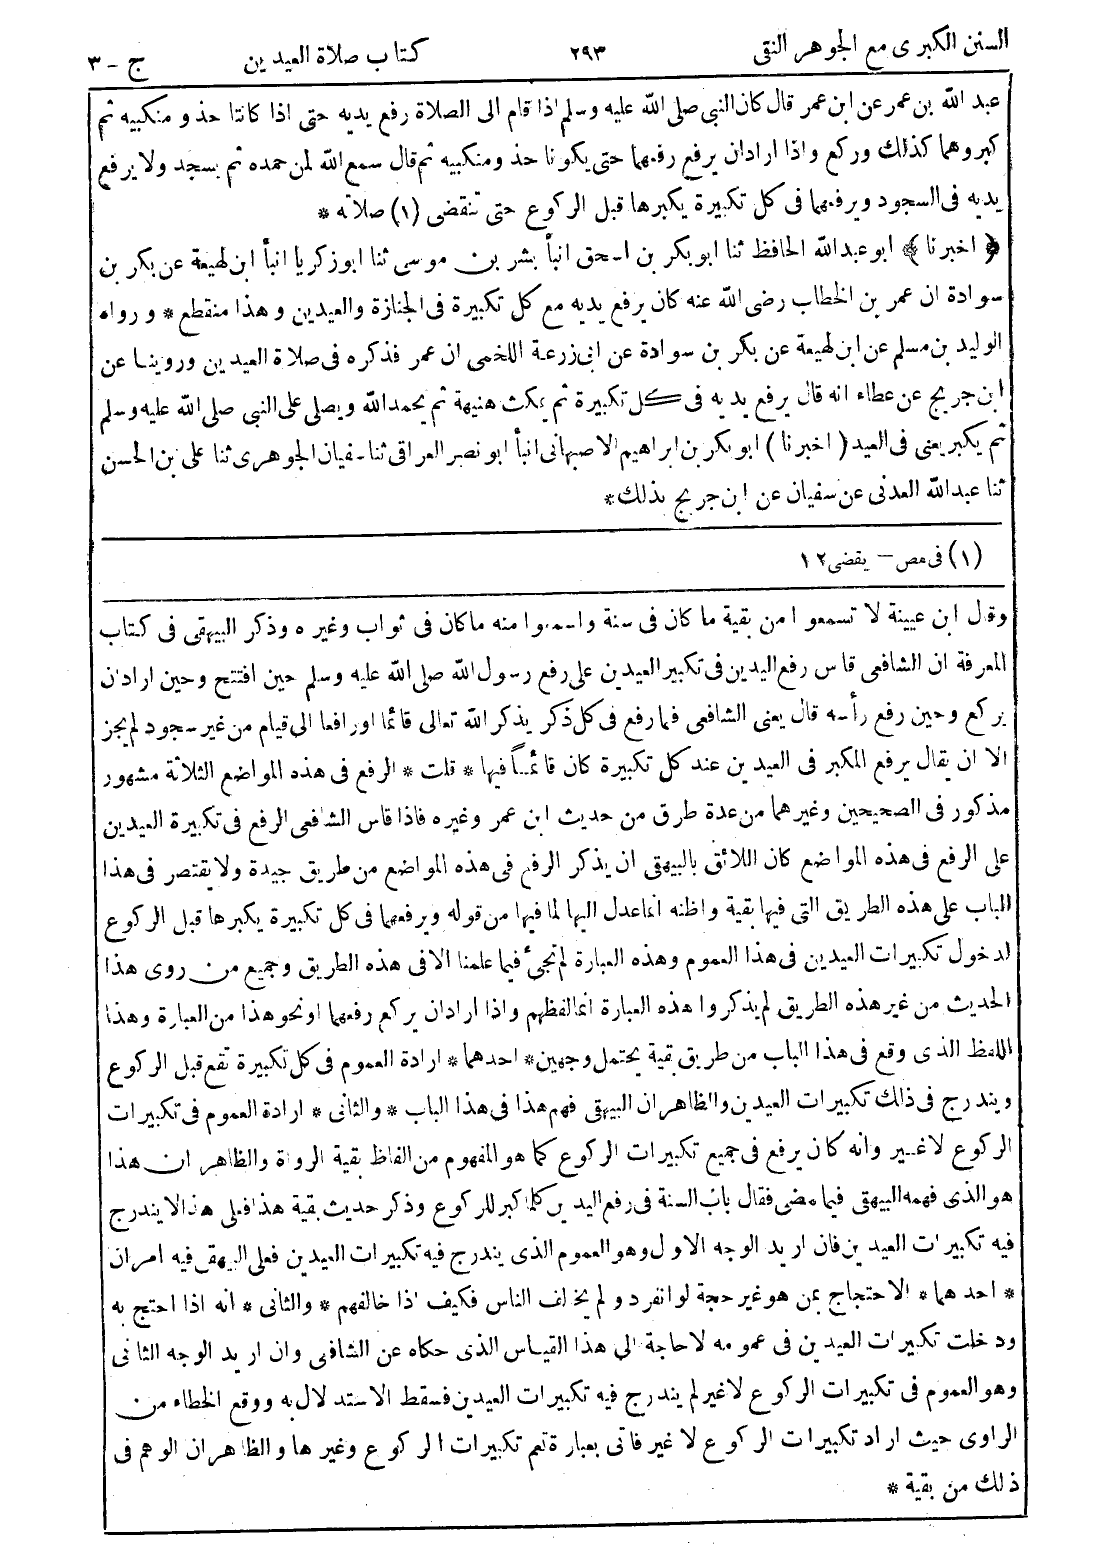 السنن الكبرى مع الجوهر النقى ٢٩٣ كتاب صلاة العيدين ج - ٣
عبد الله بن عمر عن ابن عمر قال كان النبي صلى الله عليه وسلم اذا قام الى الصلاة رفع يديه حتى اذا كانتا حذو منكبيه ثم
كبر وهما كذلك وركع واذا اراد ان يرفع رفعهما حتى يكونا حذو منكبيه ثم قال سمع الله لمن حمده ثم يسجد ولا يرفع
يديه فى السجود ويرفعهما فى كل تكبيرة يكبرها قبل الركوع حتى تنقضى (١) صلاته *
﴿ اخبرنا ﴾ ابو عبد الله الحافظ ثنا ابو بكر بن اسحق انبأ بشر بن موسى ثنا ابو زكريا انبأ ابن لهيعة عن بكر بن
سوادة ان عمر بن الخطاب رضى الله عنه كان يرفع يديه مع كل تكبيرة فى الجنازة والعيدين وهذا منقطع * ورواه
الوليد بن مسلم عن ابن لهيعة عن بكر بن سوادة عن ابى زرعة اللخمى ان عمر فذكره فى صلاة العيدين وروينا عن
ابن جريج عن عطاء انه قال يرفع يديه فى كل تكبيرة ثم يمكث هنيهة ثم يحمد الله ويصلى على النبي صلى الله عليه وسلم
ثم يكبر يعنى فى العيد ( اخبرنا ) ابو بكر بن ابراهيم الاصبهانى انبأ ابو نصر العراقى ثنا سفيان الجوهرى ثنا على بن الحسن
ثنا عبد الله العدنى عن سفيان عن ابن جريج بذلك *
(١) فى مص – يقضى ١٢
وقال ابن عيينة لا تسمعوا من بقية ما كان فى سنة واسمعوا منه ما كان فى ثواب وغيره وذكر البيهقى فى كتاب
المعرفة ان الشافعى قاس رفع اليدين فى تكبير العيدين على رفع رسول الله صلى الله عليه وسلم حين افتتح وحين اراد ان
يركع وحين رفع رأسه قال يعنى الشافعى فما رفع فى كل ذكر يذكر الله تعالى قائما او رافعا الى قيام من غير سجود لم يجز
الا ان يقال يرفع المكبر فى العيدين عند كل تكبيرة كان قائمــاً فيها * قلت * الرفع فى هذه المواضع الثلاثة مشهور
مذكور فى الصحيحين وغيرهما من عدة طرق من حديث ابن عمر وغيره فاذا قاس الشافعى الرفع فى تكبيرة العيدين
على الرفع فى هذه المواضع كان اللائق بالبيهقى ان يذكر الرفع فى هذه المواضع من طريق جيدة ولا يقتصر فى هذا
الباب على هذه الطريق التى فيها بقية واظنه انما عدل اليها لما فيها من قوله ويرفعهما فى كل تكبيرة يكبرها قبل الركوع
لدخول تكبيرات العيدين فى هذا العموم وهذه العبارة لم تجئ فيما علمنا الا فى هذه الطريق وجميع من روى هذا
الحديث من غير هذه الطريق لم يذكروا هذه العبارة انما لفظهم واذا اراد ان يركع رفعهما او نحو هذا من العبارة وهذا
اللفظ الذى وقع فى هذا الباب من طريق بقية يحتمل وجهين * احدهما * ارادة العموم فى كل تكبيرة تقع قبل الركوع
ويندرج فى ذلك تكبيرات العيدين والظاهر ان البيهقى فهم هذا فى هذا الباب * والثانى * ارادة العموم فى تكبيرات
الركوع لا غير وانه كان يرفع فى جميع تكبيرات الركوع كما هو المفهوم من الفاظ بقية الرواة والظاهر ان هذا
هو الذى فهمه البيهقى فيما مضى فقال باب السنة فى رفع اليدين كلما كبر للركوع وذكر حديث بقية هذا فعلى هذا لا يندرج
فيه تكبيرات العيدين فان اريد الوجه الاول وهو العموم الذى يندرج فيه تكبيرات العيدين فعلى البيهقى فيه امران
* احدهما * الاحتجاج بمن هو غير حجة لو انفرد ولم يخالف الناس فكيف اذا خالفهم * والثانى * انه اذا احتج به
ودخلت تكبيرات العيدين فى عمومه لا حاجة الى هذا القياس الذى حكاه عن الشافعى وان اريد الوجه الثانى
وهو العموم فى تكبيرات الركوع لا غير لم يندرج فيه تكبيرات العيدين فسقط الاستدلال به ووقع الخطاء من
الراوى حيث اراد تكبيرات الركوع لا غير فاتى بعبارة تعم تكبيرات الركوع وغيرها والظاهر ان الوهم فى
ذلك من بقية *